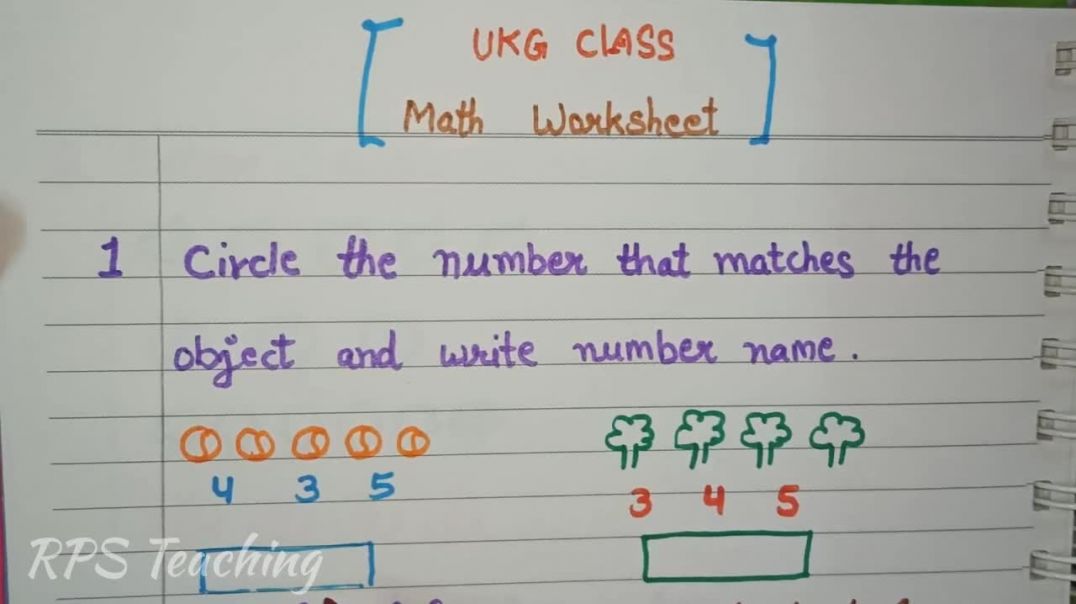 UKG CLASS
Math Worksheet
1 Circle the number that matches the
object and write number name.
4 3 5 3 4 5
RPS Teaching